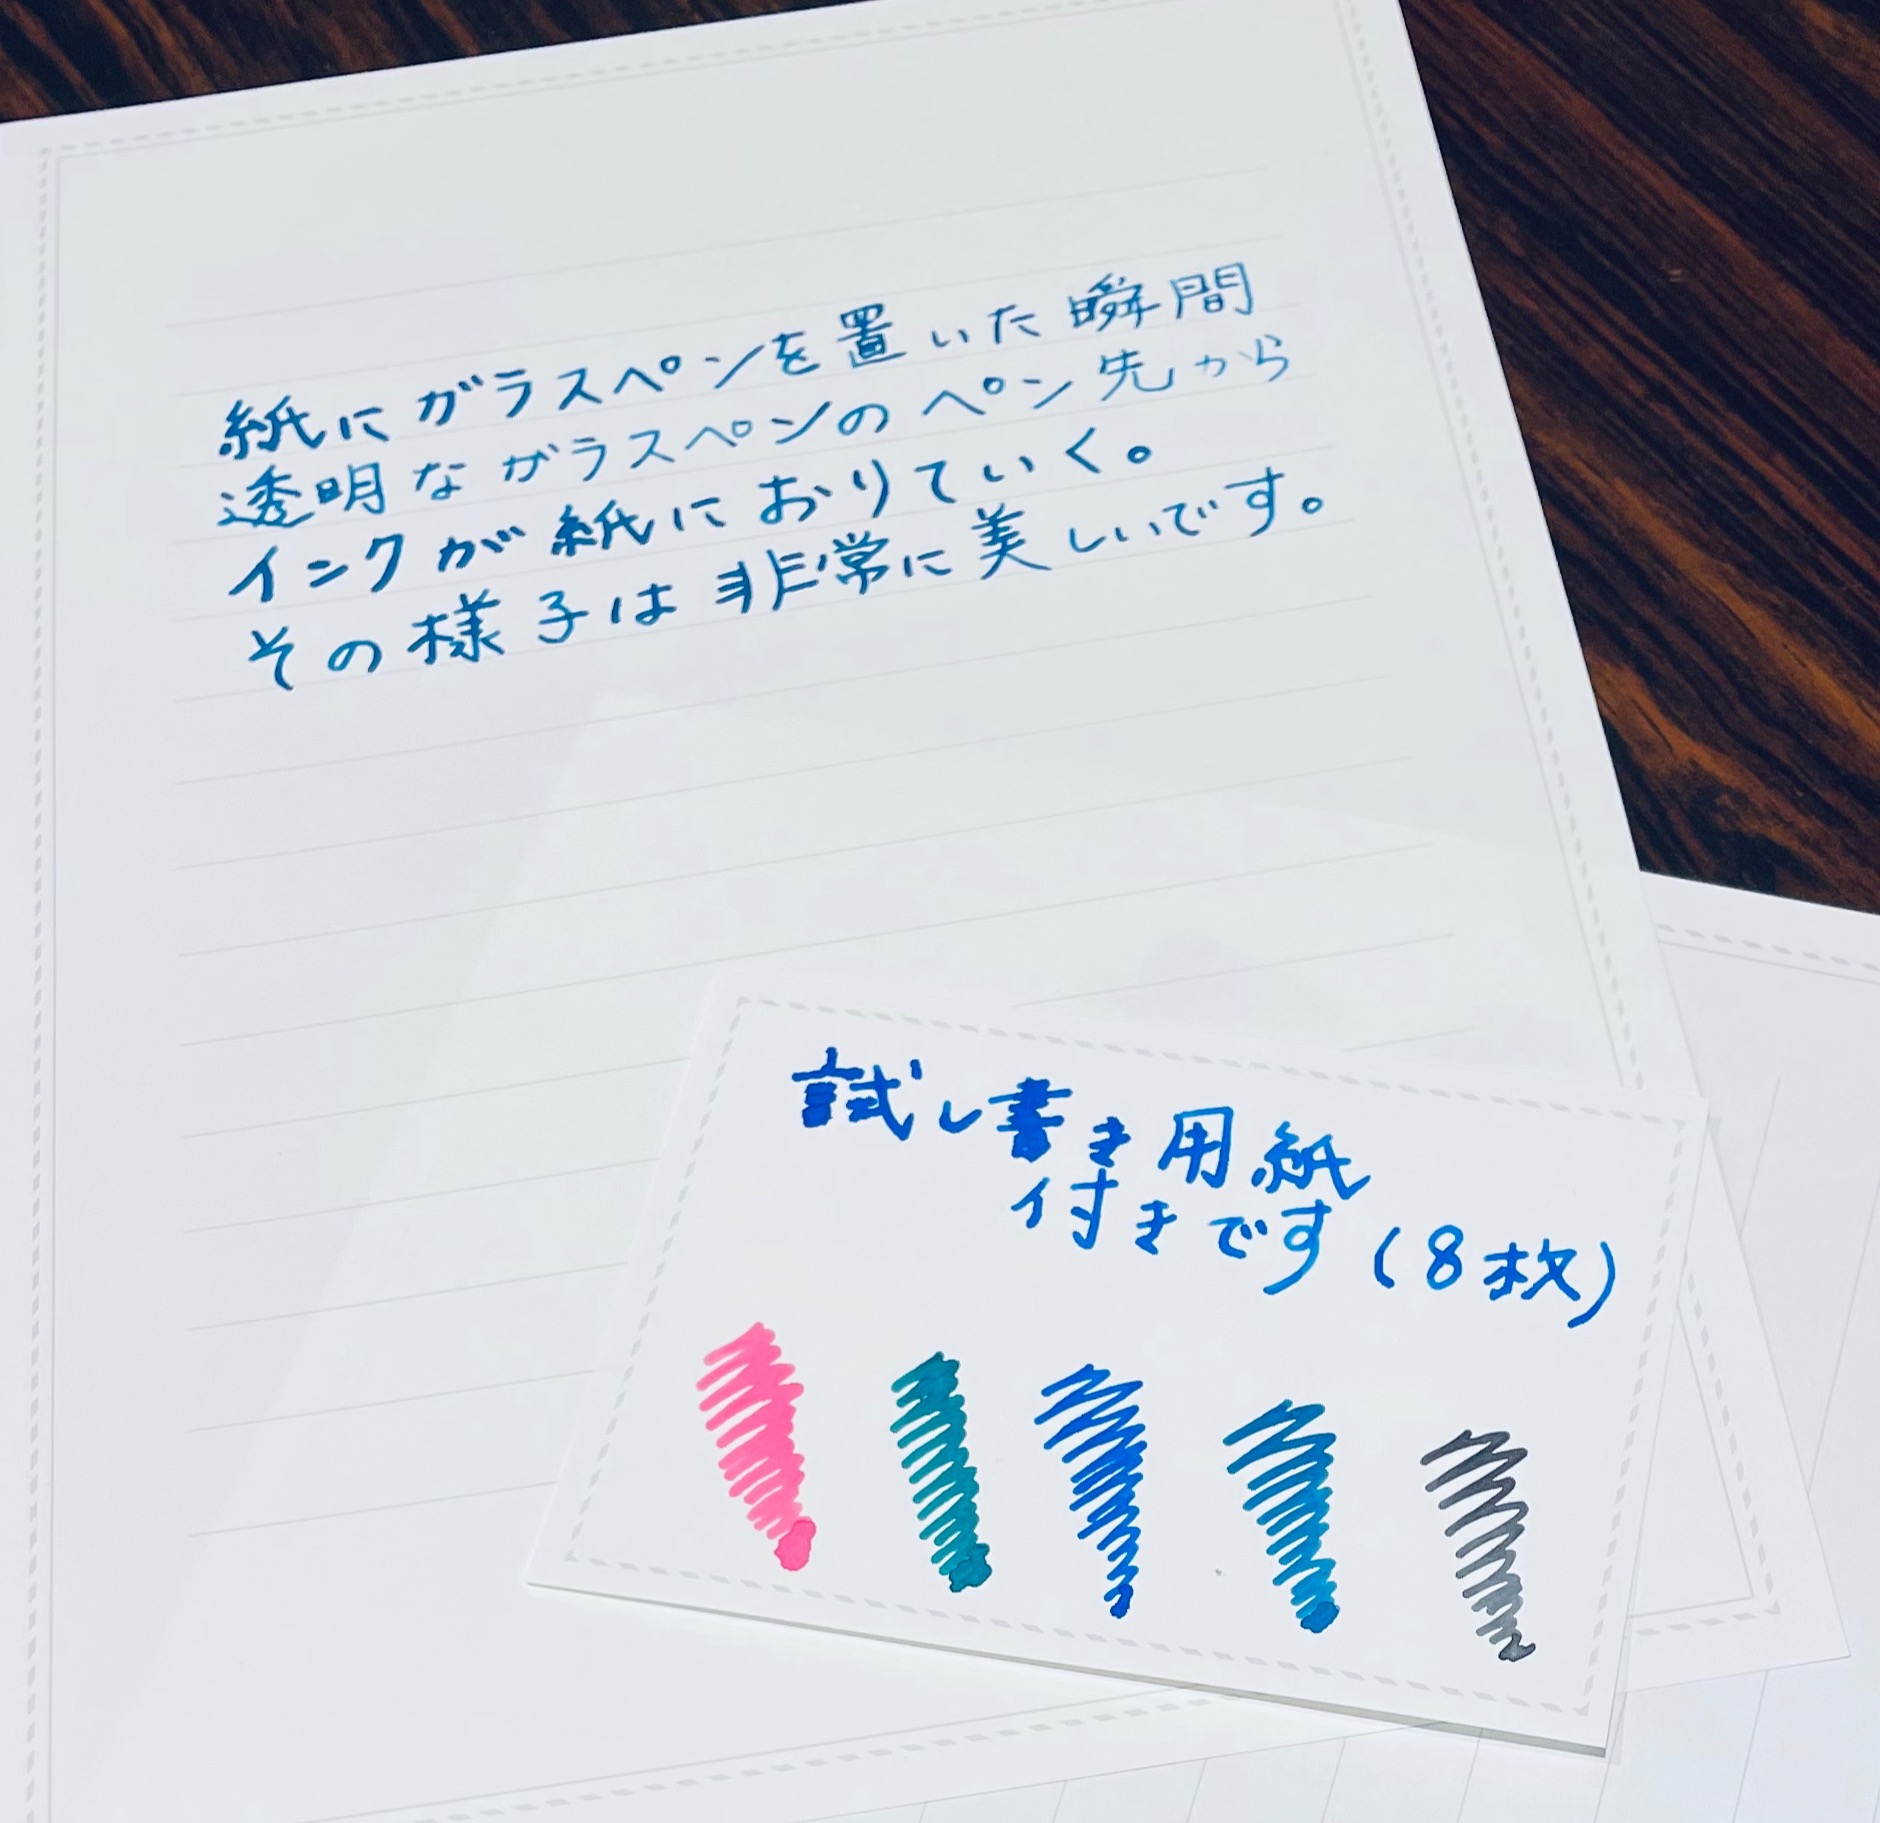 紙にガラスペンを置いた瞬間
透明ながラスペンのペン先から
インクが紙におりていく。
その様子は非常に美しいです。
試し書き用紙
付きです(8枚)